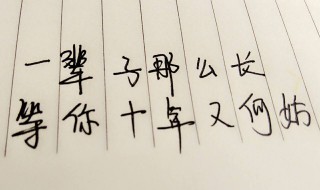 一辈子那公长
等你十年又何妨